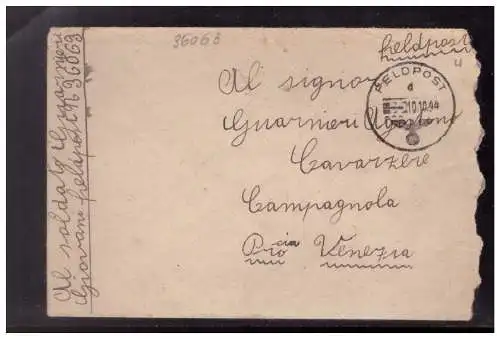 36063
feldpost
Al signor
Guarnieri Agostino
Cavarzere
Campagnola
Pro cia Venezia
FELDPOST
d
10.10.44
Al soldato Guarnieri
Giovanni feldpost N 36063